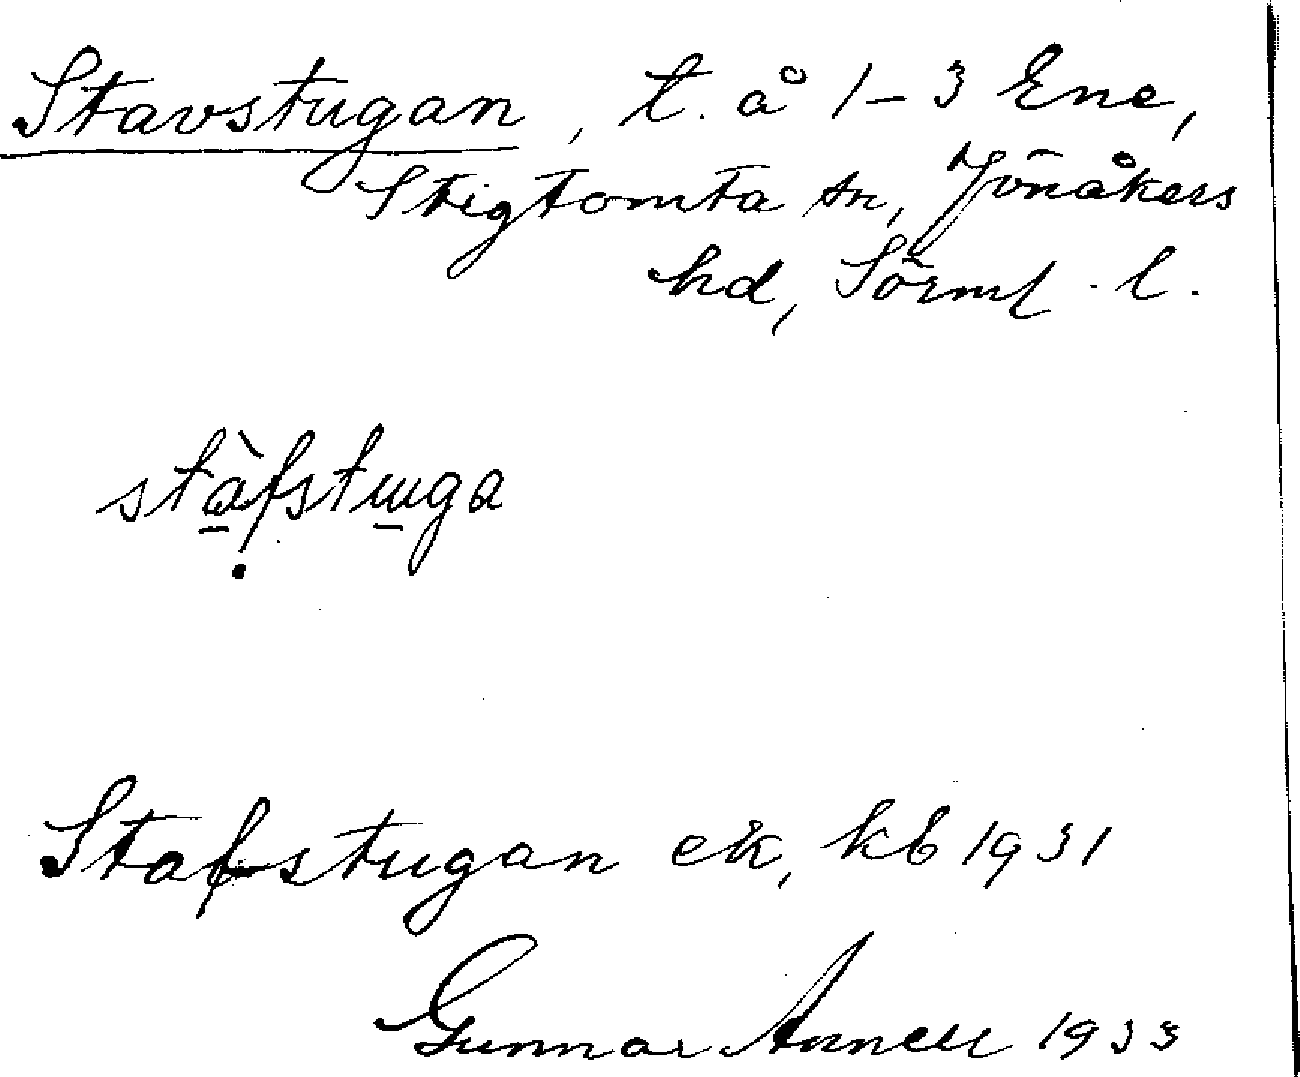 Stavstugan, t. å 1–3 Ene,
Stigtomta sn, Jönåkers
hd, Sörml. l.
stàfstɯga
Stafstugan ek, kb 1931
Gunnar Annell 1933